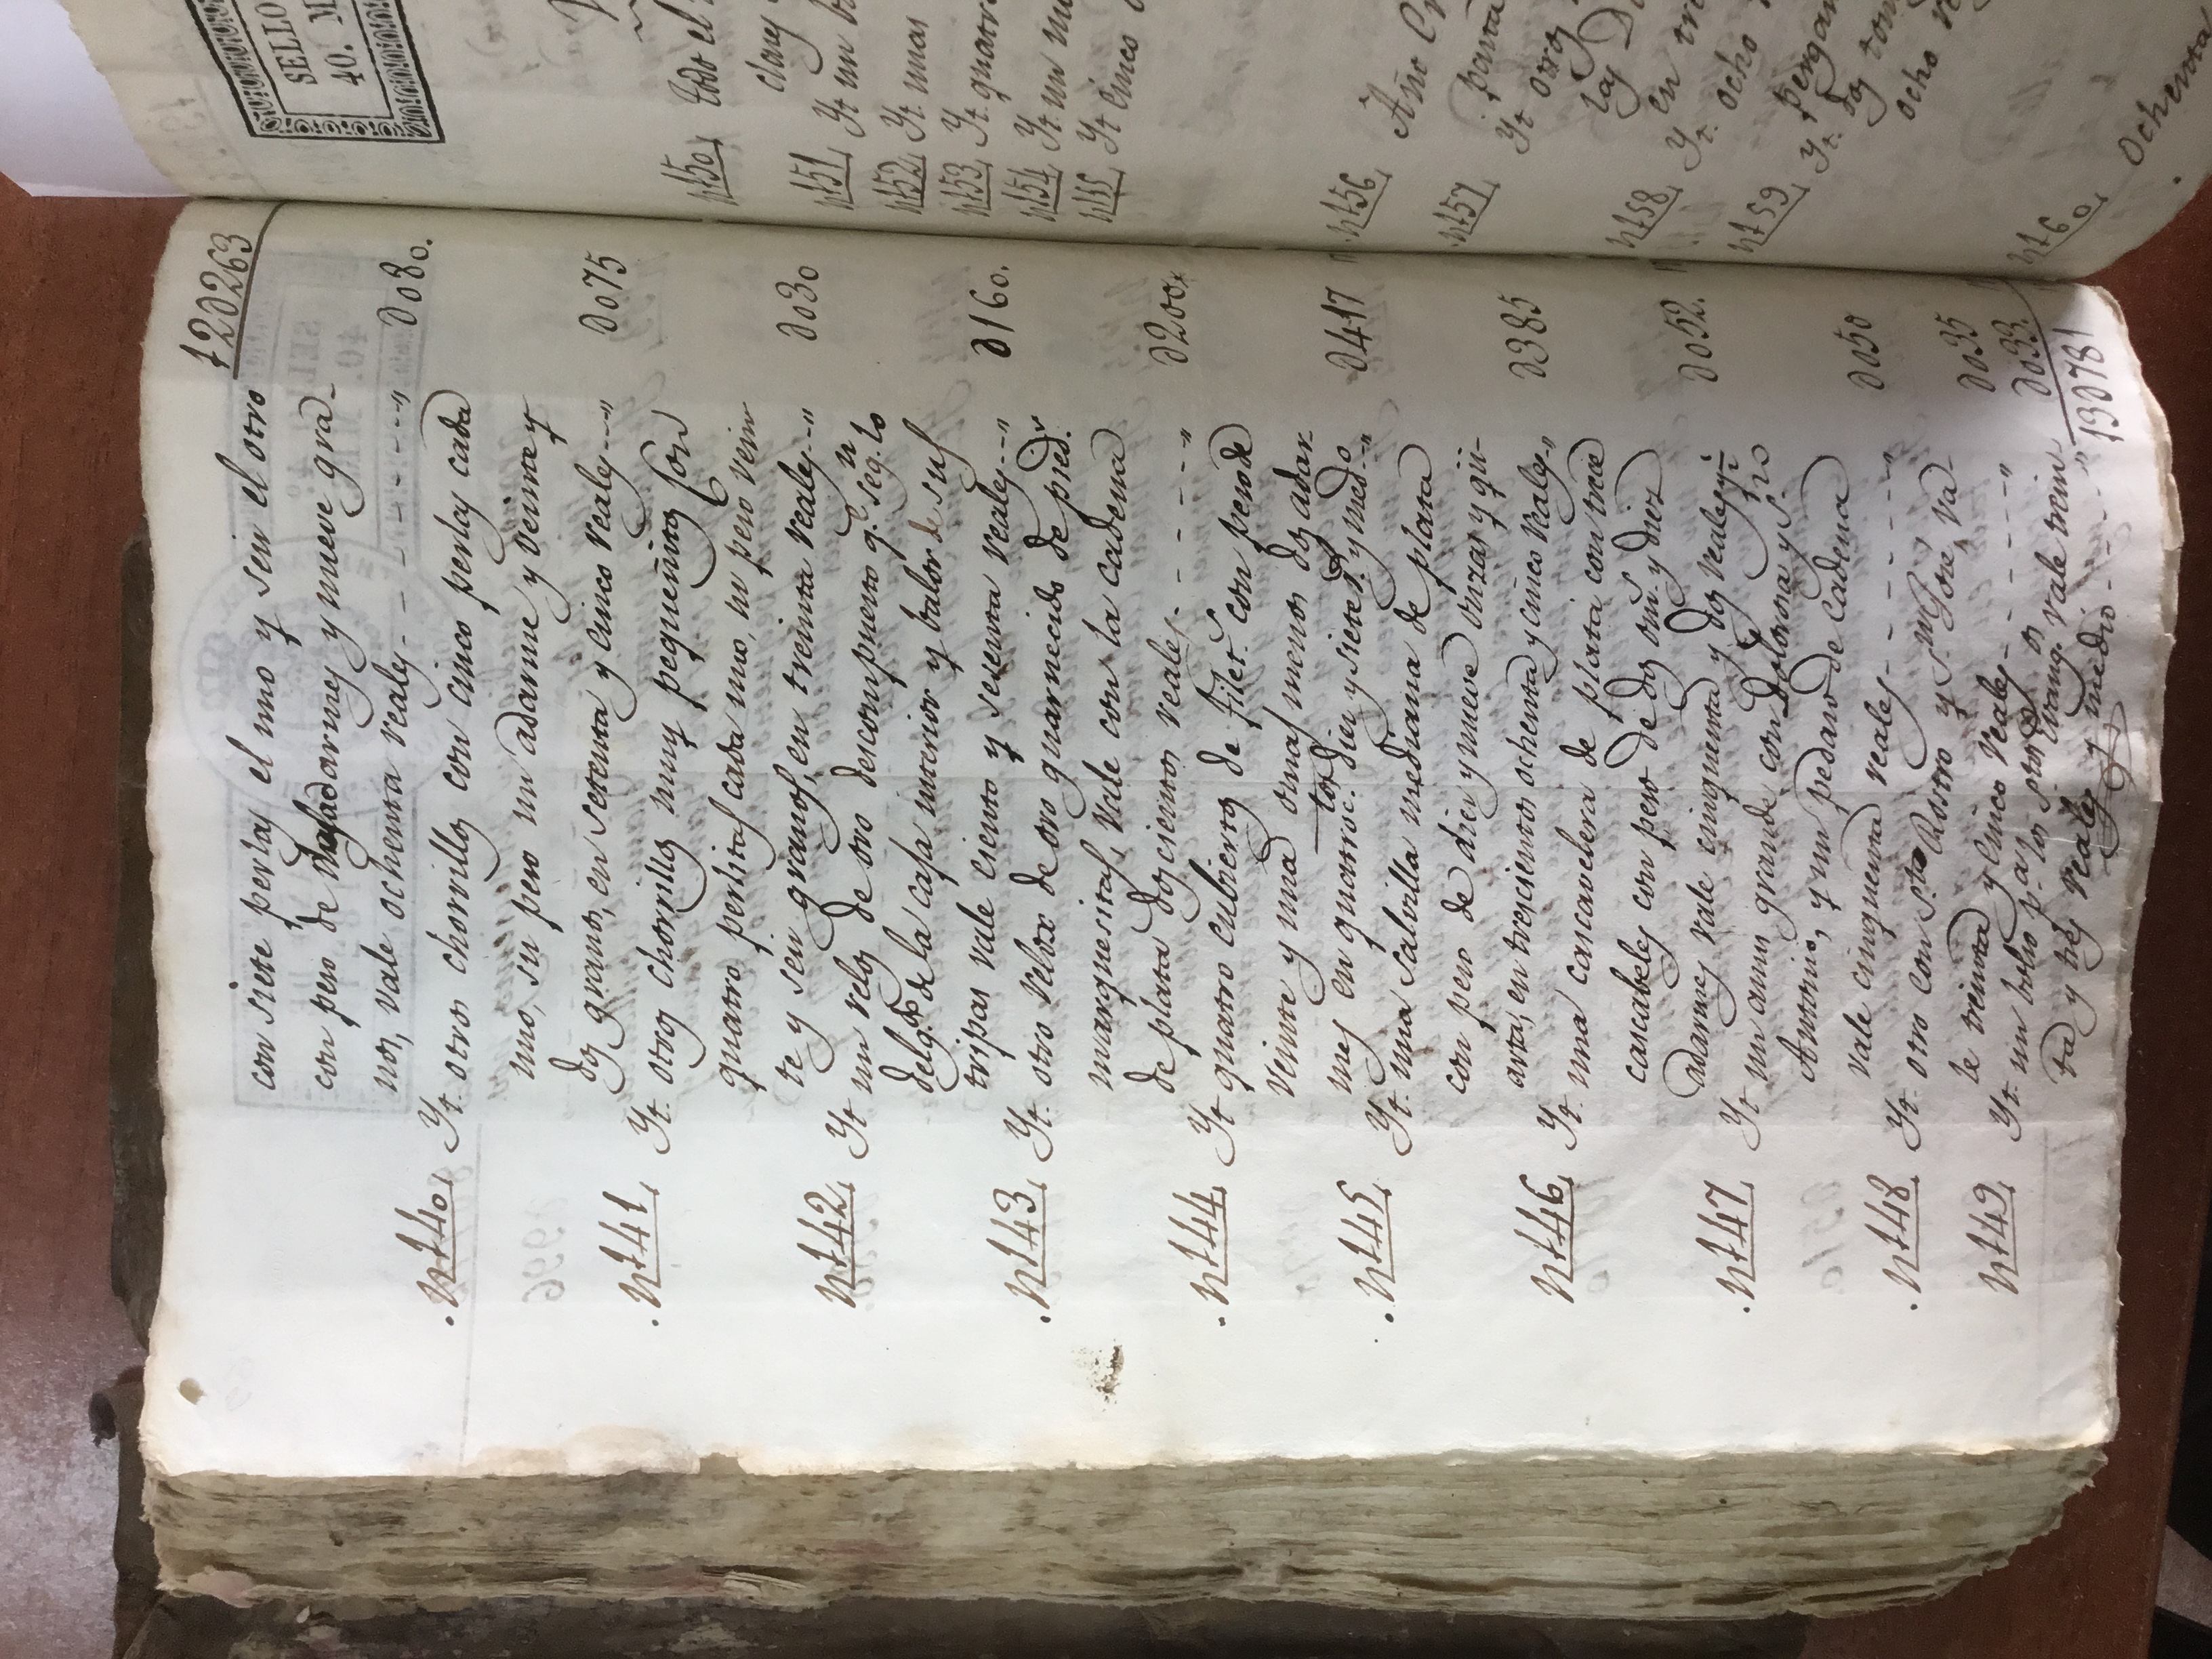 12D263
con siete perlas el uno y seis el otro
con peso de adarmes y nueve gra-
nos, vale ochenta reales - - - - - - " D080.
N+40, Yt. otros chorrillos con cinco perlas cada
uno, su peso un adarme y veinte y
dos granos, en setenta y cinco reales - - " D075
N+41, Yt. otros chorrillos muy pequeños con
quatro perlitas cada uno, su peso vein
te y seis granos, en treinta reales - - " D030
N+42, Yt un relox de oro descompuesto q.e seg.n lo
delg.do de la casa interior y balor de sus
tripas vale ciento y sesenta reales - - " D160.
N+43, Yt. otro relox de oro guarnecido de pied.s
marquesitas, vale con la cadena
de plata dos cientos reales - - - - - " D200
N+44, Yt quatro cubiertos de filet.s con peso de
veinte y una onzas menos dos adar
mes en quatroc.tos diez y siete r.s y med.o " D417
N+45, Yt. una salvilla mediana de plata
con peso de diez y nueve onzas y qu-
arta, en trescientos ochenta y cinco reales " D385
N+46, Yt. una cascavelera de plata con trece
cascabeles con peso de dos on.s y diez
adarmes vale cinquenta y dos reales D052.
N+47, Yt un anus grande con Dolorosa y S.
Antonio, y un pedazo de cadena
vale cinquenta reales - - - - - " D050
N+48, Yt. otro con S.to Rostro y S.n Jose, va-
le treinta y cinco reales - - - - " D035
N+49, Yt. un bolso p.a los s.tos evang.os vale trein
ta y tres reales y medio - - - - " D033.
13D781
SELLO
40. M
N+50, todo el
N+51, Yt un b
N+52, Yt unas
N+53, Yt quatro
N+54, Yt un
N+55, Yt cinco
N+56,
N+57, Yt otro
las
en tre
N+58, Yt. ocho
pergam
N+59, Yt. dos tom
ocho
N+60, Ochenta